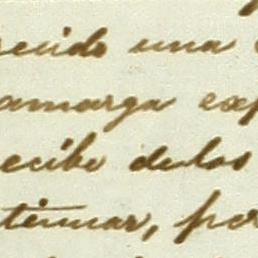 recido una
amarga exp
recibe delos
tinuar, por